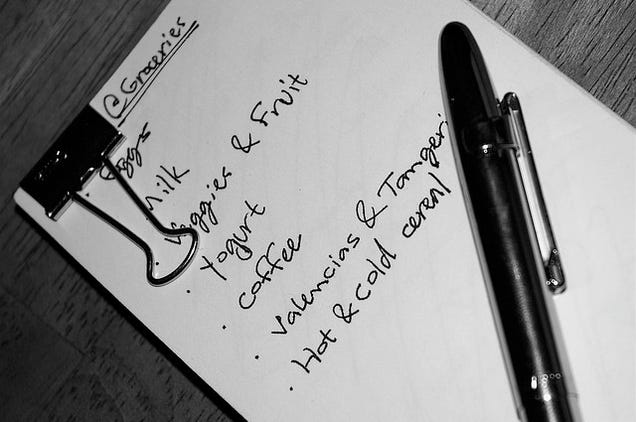 @Groceries
Eggs
· Milk
· Veggies & Fruit
· Yogurt
· Coffee
· Valencias & Tangeri
· Hot & cold cereal